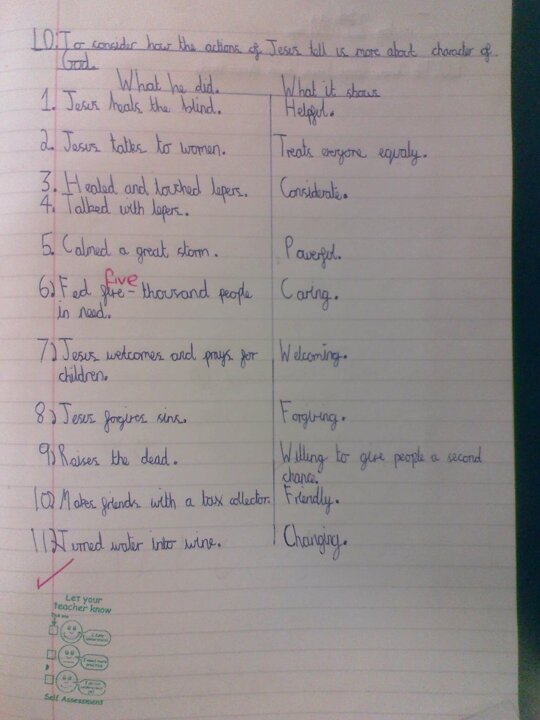 LO. To consider how the actions of Jesus tell is more about character of
God.
What he did. What it shows
1. Jesus heals the blind. Helpful.
2. Jesus talks to women. Treats everyone equaly.
3. Healed and touched lepers. Considerate.
4. Talked with lepers.
5. Calmed a great storm. Powerful.
five
6) Fed five - thousand people Caring.
in need.
7) Jesus welcomes and prays for Welcoming.
children.
8) Jesus forgives sins. Forgiving.
9) Raises the dead. Willing to give people a second
chance.
10) Makes friends with a tax collector. Friendly.
11) Turned water into wine. Changing.
Let your
teacher know
Self Assessment